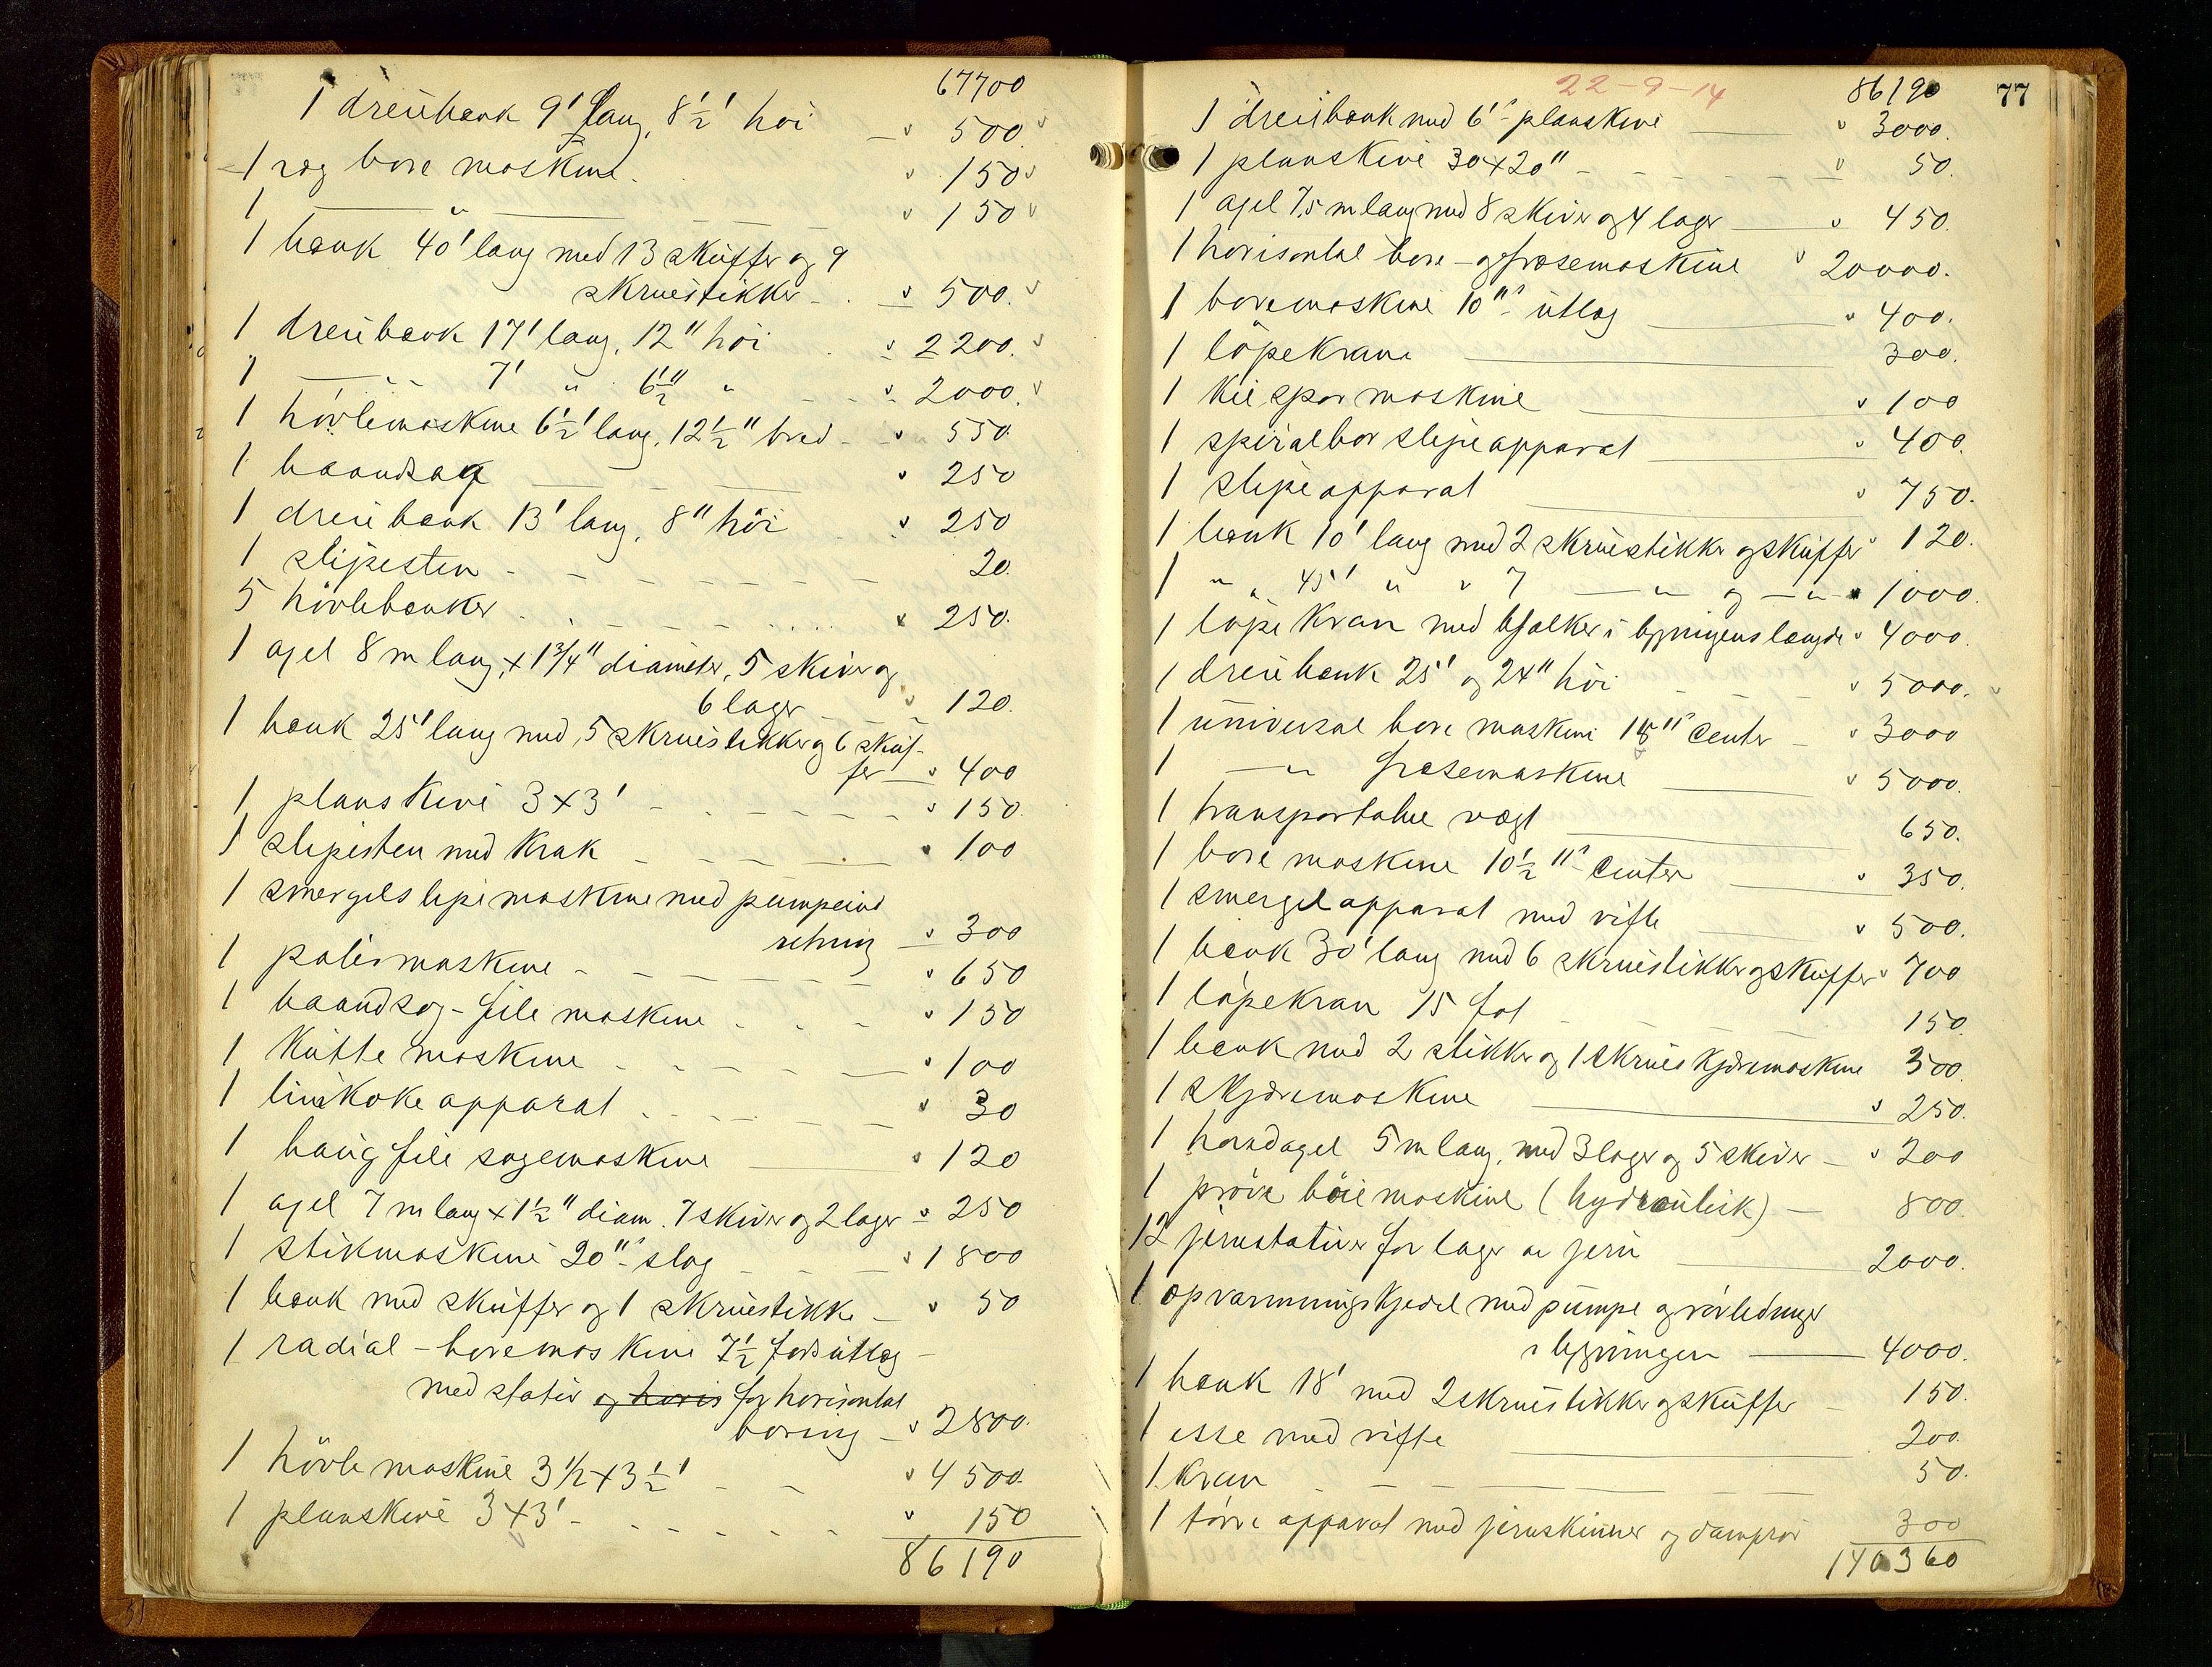 67700
1 dreiebænk 9' lang, 8½' høi — " 500
1 væg bore maskine. " 150
1 — " — " 150
1 bænk 40' lang med 13 skuffer og 9
skruestikker - . " 500.
1 dreiebænk 17' lang, 12" høi " 2200.
1 — " 7' " 6½" " " 2000.
1 høvlemaskine 6½' lang, 12½" bred - " 550
1 baandsag " 250
1 dreiebænk 13' lang, 8" høi " 250
1 slipesten - 20.
5 høvlebænker " 250.
1 axel 8 m lang x 1¾" diameter, 5 skiver og
6 lager " 120.
1 bænk 25' lang med 5 skruestikker og 6 skuf-
fer — " 400
1 planskive 3 x 3' - " 150.
1 slipesten med krak " 100
1 smergelslipemaskine med pumpeind
retning " 300
1 polermaskine - " 650
1 baandsag-file maskine " 150
1 kutte maskine " 100
1 limkoke apparat " 30
1 baug file sagemaskine " 120
1 axel 7 m lang x 1½" diam. 7 skiver og 2 lager " 250
1 stikmaskine 20"s slag " 1800
1 bænk med skuffer og 1 skruestikke - " 50
1 radial - boremaskine 7½ fods utlæg -
med stativ og horis for horisontal
boring - " 2800.
1 høvle maskine 3½ x 3½' - " 4500.
1 planskive 3 x 3' - " 150
86190
22-9-14
86190
77
1 dreiebænk med 6's planskive " 3000.
1 planskive 30 x 20" " 50.
1 axel 7,5 m lang med 8 skiver og 4 lager " 450.
1 horisontal bore- og fræsemaskine " 20000.
1 boremaskine 10"s utlæg " 400.
1 løpekran 300.
1 kilespor maskine " 100
1 spiralbor slipeapparat " 400.
1 slipeapparat " 750.
1 bænk 10' lang med 2 skruestikker og skuffer " 120.
1 " " 45' " " 7 — " — og — " — " 1000.
1 løpe kran med bjælker i bygningens længde " 4000.
1 dreiebænk 25' og 24" høi " 5000.
1 universal bore maskine 18"s center - " 3000
1 — " fræsemaskine " 5000.
1 transportable vægt 650.
1 bore maskine 10½"s center " 350.
1 smergelapparat med vifte " 500.
1 bænk 30' lang med 6 skruestikker og skuffer " 700
1 løpekran 15 fot 150.
1 bænk med 2 stikker og 1 skrueskjæremaskine 300.
1 skjæremaskine " 250.
1 hovedaxel 5 m lang, med 3 lager og 5 skiver - " 200
1 prøve bøie maskine (hydraulisk) — 800.
12 jernstativer for lager av jern 2000.
1 opvarmningskjedel med pumpe og rørledninger
i bygningen — 4000.
1 bænk 18' med 2 skruestikker og skuffer - 150.
1 esse med vifte 200.
1 kran 50.
1 tørre apparat med jernskinner og damprør 300
140360